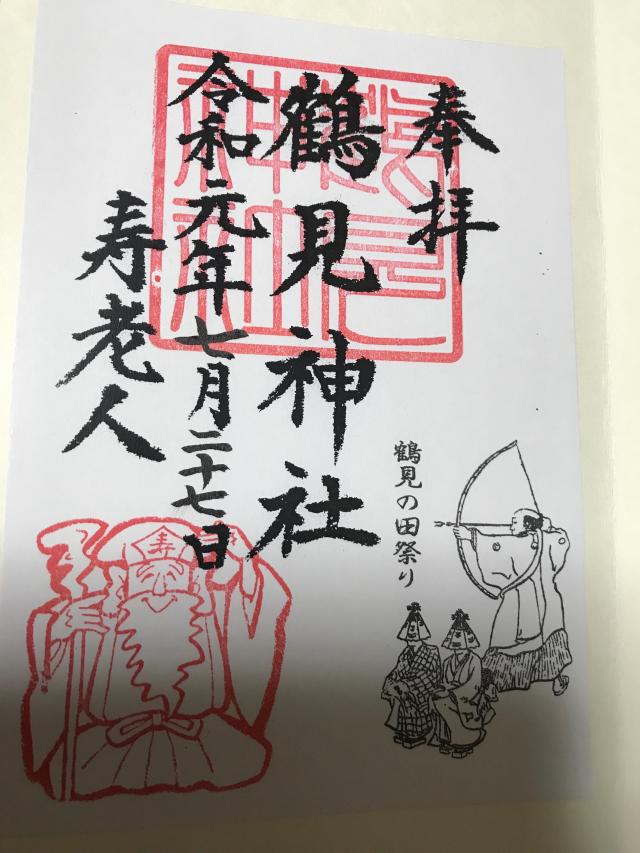 奉拝
鶴見神社
令和元年七月二十七日
寿老人
鶴見の田祭り
寿